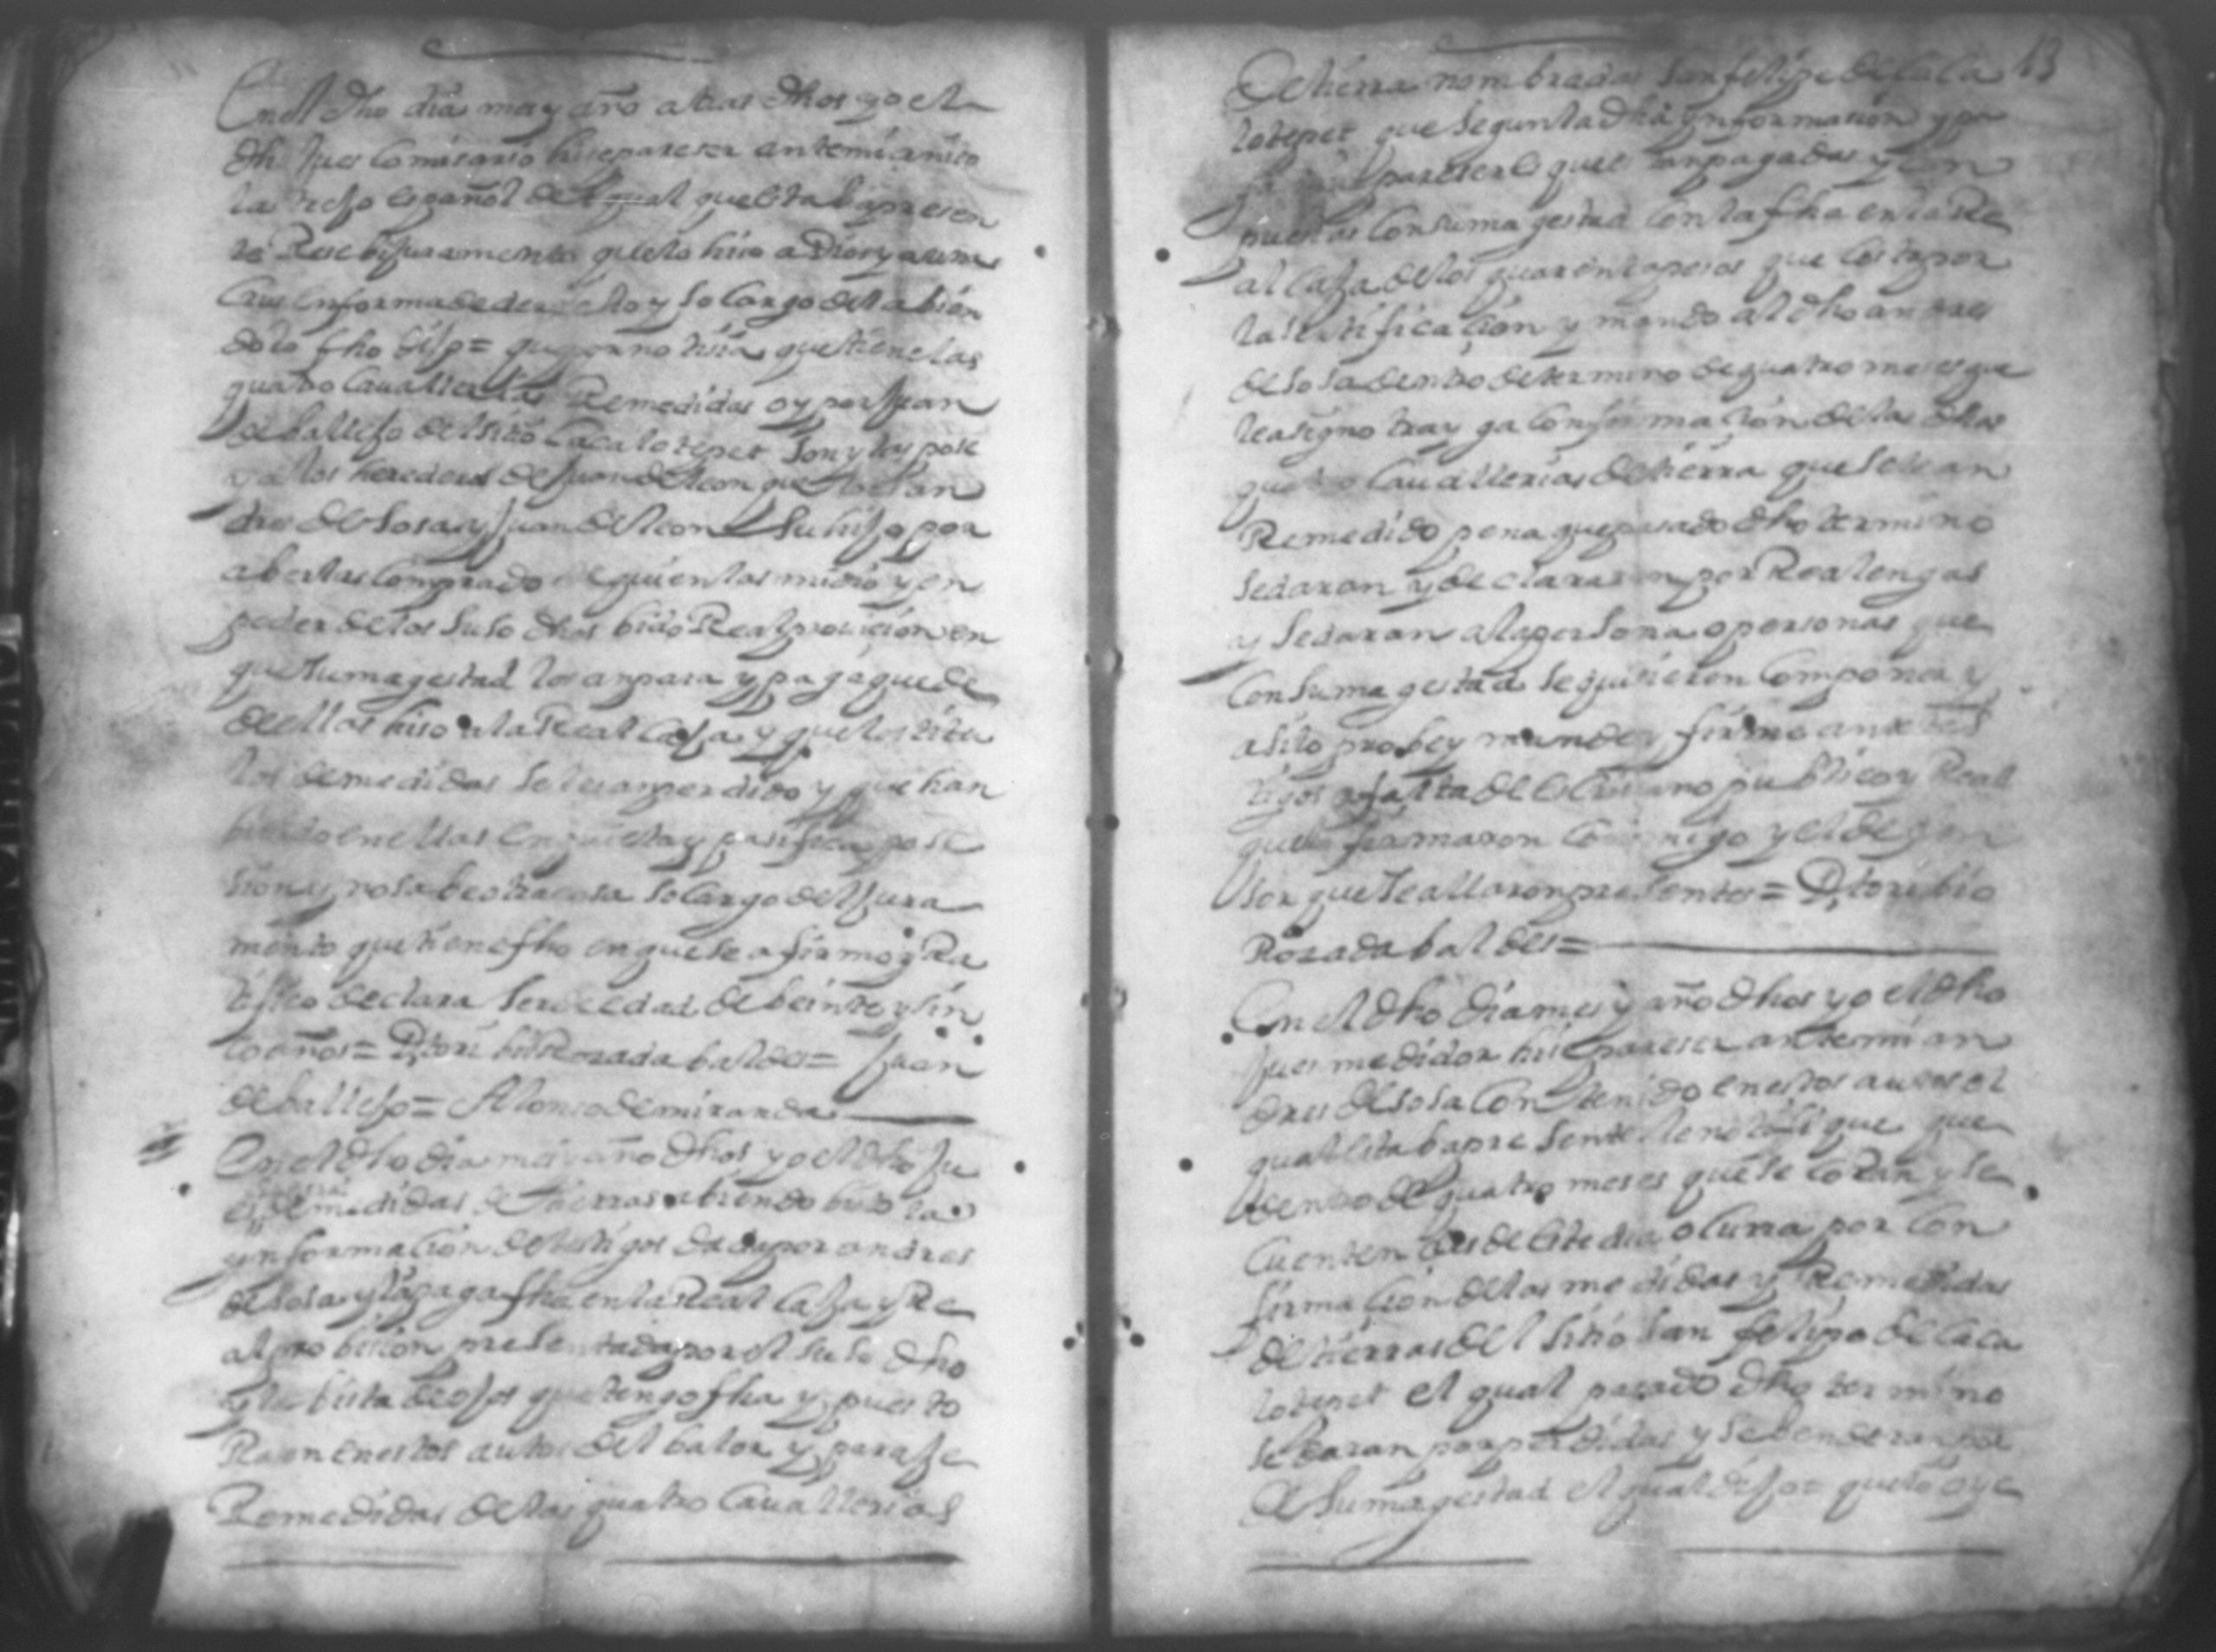 En el dho dia mes y año atras dhos yo el
dho Jues Comisario hise pareser ante mi a
español del qual que estaba presen
te Resebi juramento que lo hiso a Dios y a una
Crus en forma de derecho y so cargo del abien
dolo fho dijo = que por notisia que tiene las
quatro Cauallerias Remedidas oy por Juan
de ballejo del sitio Cacalotepet son y las pose
en los herederos de Juan de leon que son an
dres de Sosa y Juan de leon su hijo por
aberlas Comprado de quien las midio y en
poder de los suso dhos bido Real provision en
que su magestad los anpara y paga que de
de ellas hiso a la Real Caja y que los titu
los de medidas se les an perdido y que han
bibido en ellas en quieta y pasifica pose
sion y no sabe otra cosa so cargo del jura
mento que tiene fho en que se afirmo y Ra
tifico declara ser de edad de beinte y sin
co años = D, toribio Rosada baldes = Juan
de ballejo = Alonso de miranda
En el dho dia mes y año dhos yo el dho Ju
es de medidas de tierras abiendo bisto la
ynformacion de testigos dada por andres
de Sosa y la paga fha en la Real Caja y Re
al probision presentada por el suso dho
y la bista de ojos que tengo fha y puesto
Rason en estos autos del balor y paraje
Remedidas de las quatro Cauallerias
13
De tierra nombradas San felipe de Caca
lotepet que segun la dha ynformacion y pa
pareser que es an pagadas y con
puestas Con su magestad Con la fha en la Re
al Caja de los quarenta pesos que costa por
la sertificacion y mando al dho andres
de Sosa dentro de termino de quatro meses que
le asigno trayga Confirmacion de las dhas
quatro Cauallerias de tierra que se le an
Remedido pena que pasado dho termino
se daran y declararan por Realengas
y se daran a la persona o personas que
Con su magestad se quisieren Componer y
asi lo probey mande y firme ante tes
tigos a falta de escriuano publico y Real
que lo firmaron Conmigo y el defen
sor que se allaron presentes = D, toribio
Rosada baldes =
En el dho dia mes y año dhos yo el dho
Jues medidor hise pareser ante mi an
dres de Sosa Contenido en estos autos el
qual estaba presente le notifique que
dentro de quatro meses que se coran y se
Cuenten desde este dia ocurra por Con
firmacion de las medidas y Remedidas
de tierras del sitio San felipe de Caca
lotepet el qual pasado dho termino
se daran por perdidas y se benderan por
de su magestad el qual dijo = que lo oye